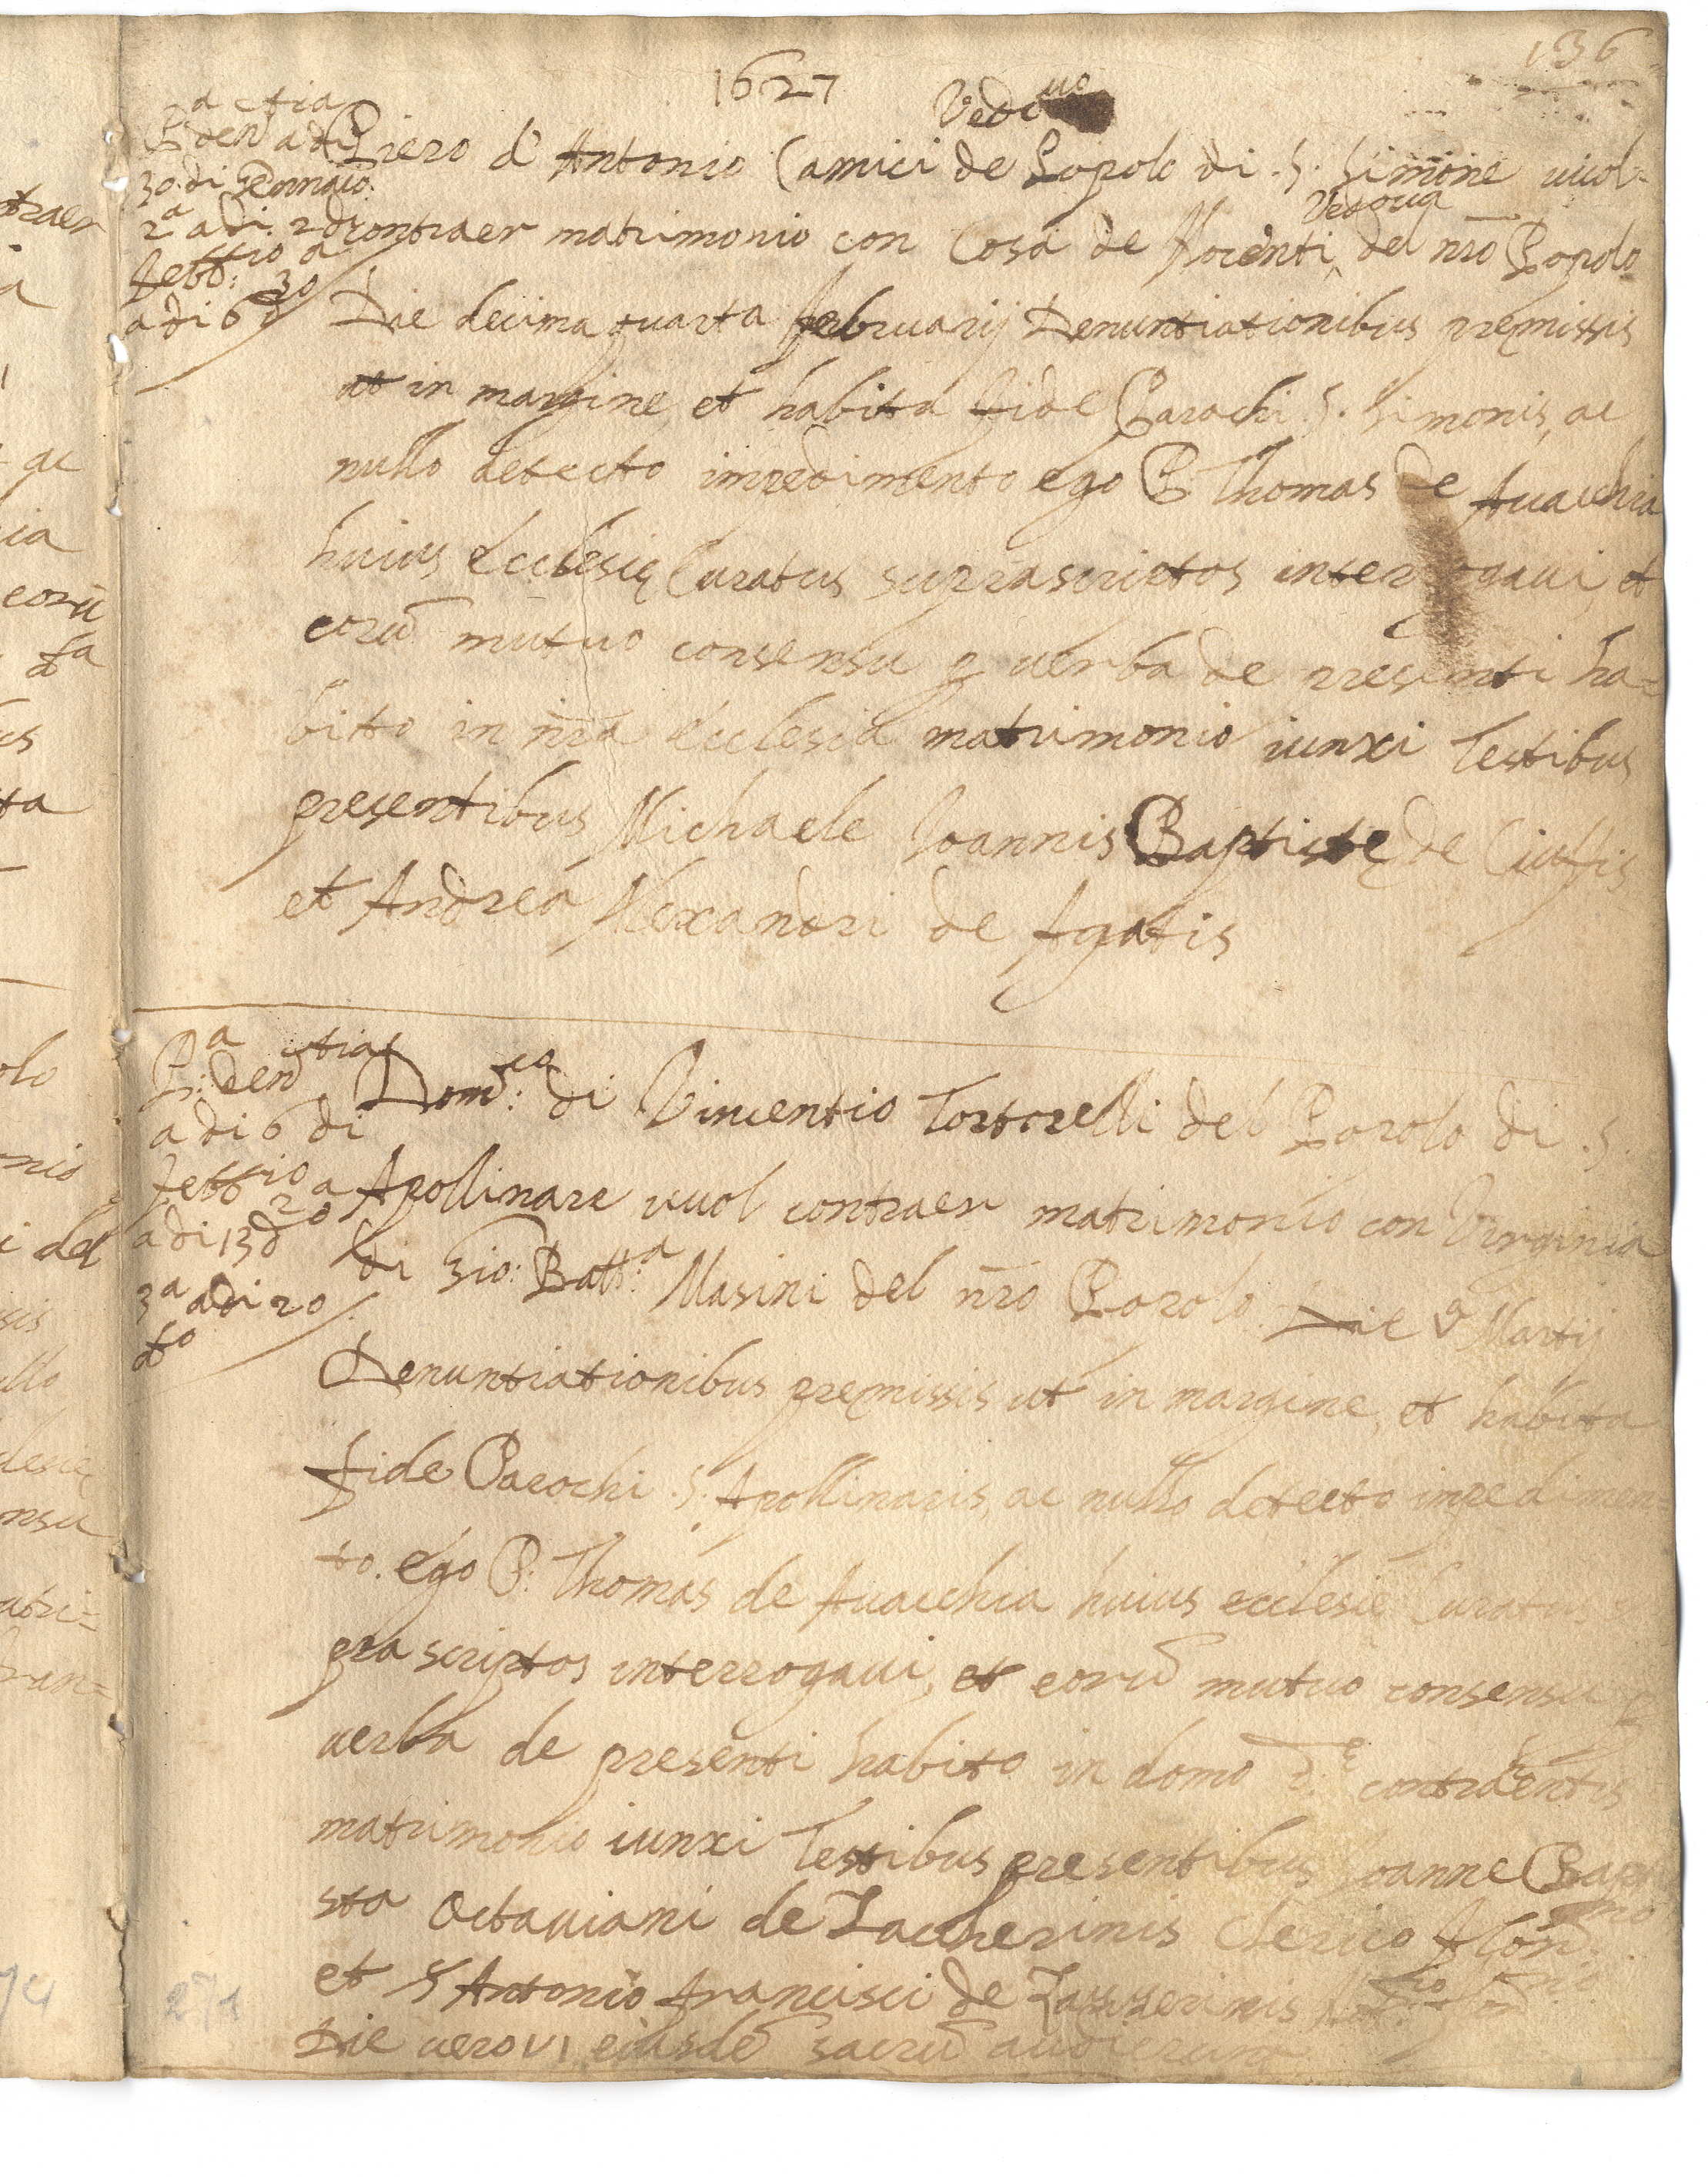 136
1627
Vedouo
P.a denctia adi
30 di Gennaio.
2a adi. 2 do
febb:rio a
3o
adi 6 do
Piero d' Antonio Camici de Popolo di .S. Simone uuol
contraer matrimonio con Cosa de Nocenti Vedoua del nro Popolo
Die decima quarta februarij Denuntiationibus premissis
ut in margine, et habita fide Parochi .S. Simonis, ac
nullo detecto impedimento ego P Thomas de Auacchia
huius Ecclesię Curatus suprascriptos interrogaui, et
eorū mutuo consensu p uerba de presenti ha=
bito in nra Ecclesia matrimonio iunxi Testibus
presentibus Michaele Joannis Baptistę de Ciuffis
et Andrea Alexandri de Agatis
P.a denctia
adi 6 di
febb:rio 2a
adi 13 do
3a adi 20
do
Dom:co di Vincentio Tortorelli del Popolo di .S.
Apollinare uuol contraer matrimonio con Virginia
di Gio: Batt:a Masini del nro Popolo. Die Martij
Denuntiationibus premissis ut in margine, et habita
fide Parochi .S. Apollinaris, ac nullo detecto impedimen=
to. ego P: Thomas de Auacchia huius ecclesie Curatus
prascriptos interrogaui, et eorū mutuo consensu p
uerba de presenti habito in domo d.e contraentis
matrimonio iunxi Testibus presentibus Joanne Bapt
sta Octauiani de Zaccherinis Clerico flon:no
et S Antonio francisci de Zaccherinis
Die uero VI eiusdē sacrū audierunt
271